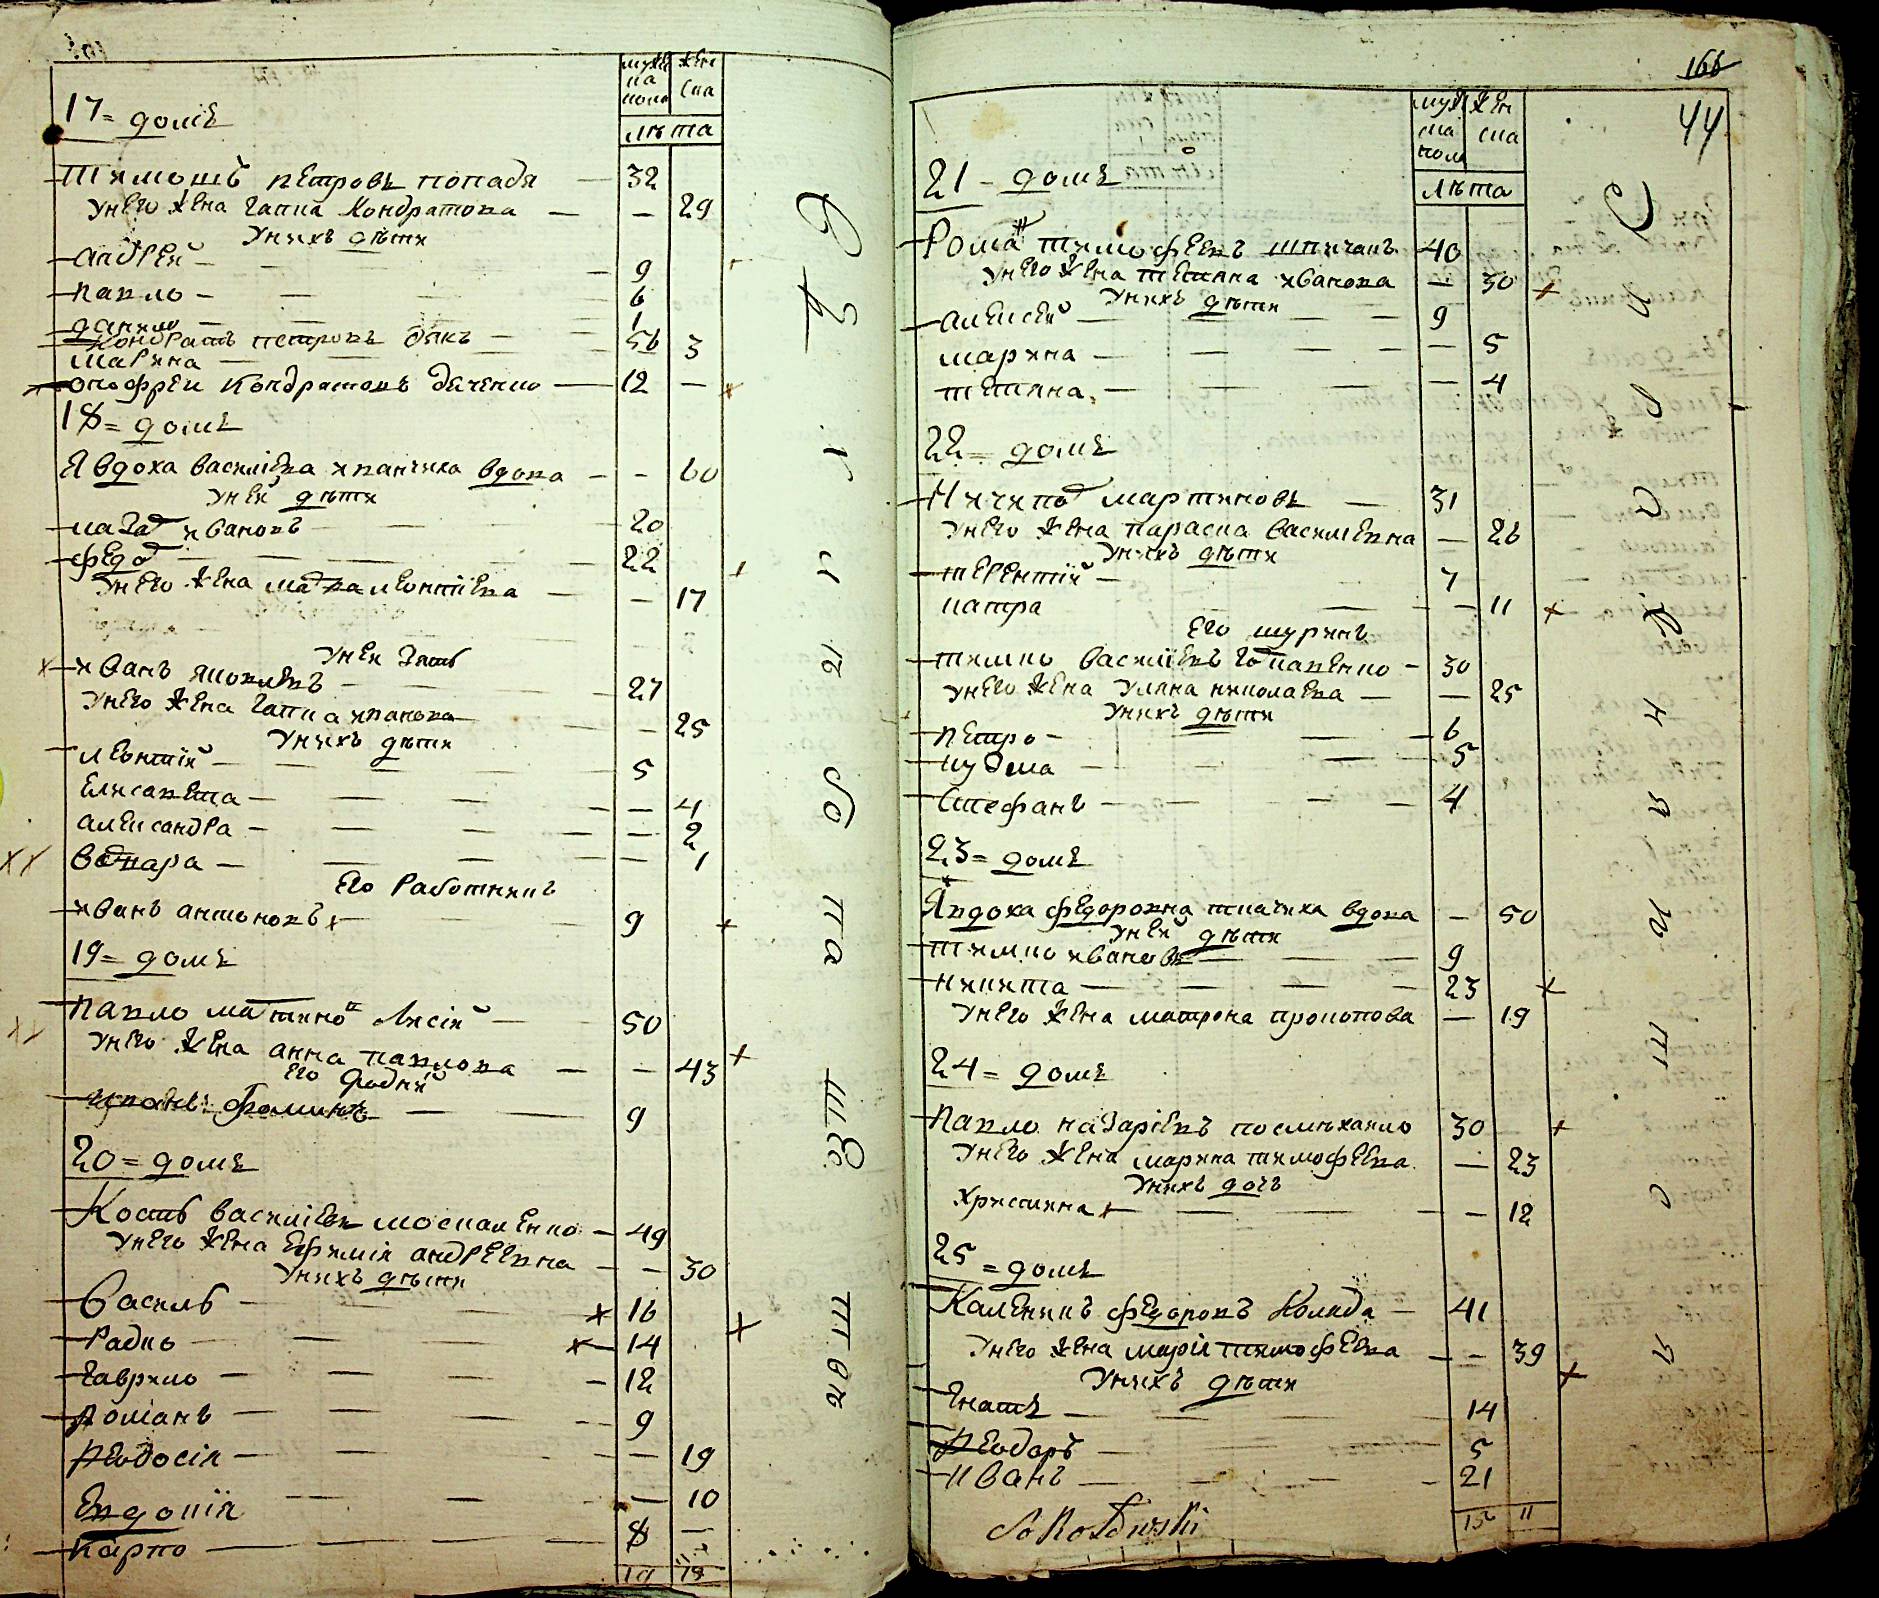 мужеска пола женска
лѣта
17= домъ
Тимошъ петровъ попадя — 32
Унего жена гапка Кондратова — — 29
Унихъ дѣти
андрей — 9
павло — 6
данило — 1
Кондратъ петровъ дякъ — 56
марина — 3
онофрей Кондратовъ дяченко — 12 —
18= домъ
Явдоха василіева вдова — - 60
Уней дѣти
ивановъ — 20
федо — 22
Унего жена леонтіева — — 17
Уней зять
иванъ яковлевъ — 27
Унего жена гапка иванова — 25
Унихъ дѣти
леонтій — 5
Елисавета — — 4
александра — — 2
варвара — — 1
Его работникъ
иванъ антоновъ — 9
19= домъ
павло мартинов лисій — 50
Унего жена анна павлова — — 43
Его родній
иванъ фоминъ — 9
20= домъ
Кость василіевъ москаленко — 49
Унего жена Ефимія андреевна — — 30
Унихъ дѣти
Василь — 16
Радко — 14
Гаврило — 12
Романъ — 9
Феодосія — — 19
Евдокія — — 10
Карпо — 8 —
19
166
44
мужеска пола женска
лѣта
21 — домъ
Рома тимофеевъ шпичакъ 40
Унего жена тетяна иванова — 30
Унихъ дѣти
алексей — 9
марина — — 5
тетяна — — 4
22= домъ
Ничипо мартиновъ — 31
Унего жена параска василіевна — 26
Унихъ дѣти
терентій — 7
катра — — 11
Его шуринъ
тимко василіевъ — 30
Унего жена Уляна николаева — — 25
Унихъ дѣти
петро — 6
кузма — 5
Стефанъ — 4
23= домъ
Явдоха федоровна ткачиха вдова — 50
Уней дѣти
тимко ивановъ — 9
никита — 23
Унего жена матрона прокопова — 19
24= домъ
Павло назаріевъ посмѣхайло 30
Унего жена марина тимофеева — 23
Унихъ дочъ
христина — — 12
25 = домъ
Каленикъ федоровъ Коляда — 41
Унего жена марія тимофеева — - 39
Унихъ дѣти
Гнатъ — 14
Феодоръ — 5
Иванъ — 21
Sokołowski
15 11